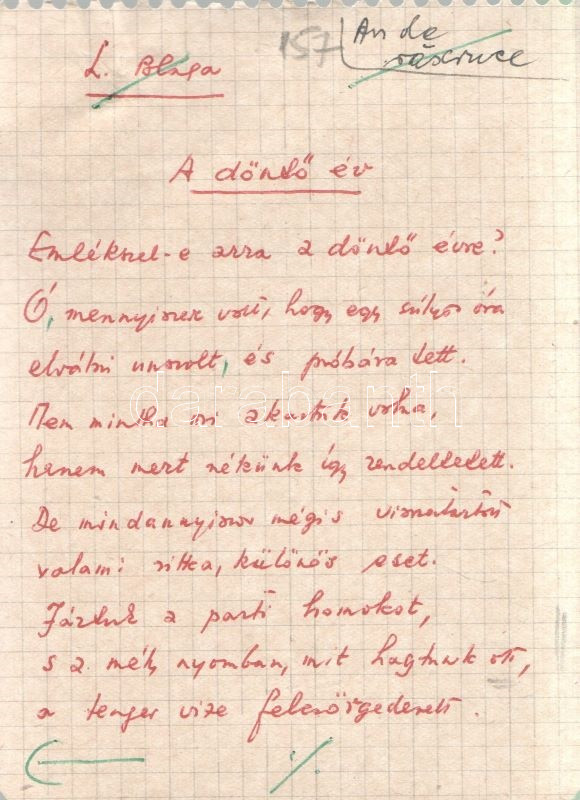 L. Blaga
157
An de
răscruce
A döntő év
Emlékszel-e arra a döntő évre?
Ó, mennyiszer volt, hogy egy súlyos óra
elválni unszolt, és próbára tett.
Nem mintha mi akartuk volna,
hanem mert nékünk így rendeltetett.
De mindannyiszor mégis visszatartott
valami ritka, különös eset.
Jártuk a parti homokot,
s a mély nyomban, mit hagytunk ott,
a tenger vize felcsörgedezett.
darabanth